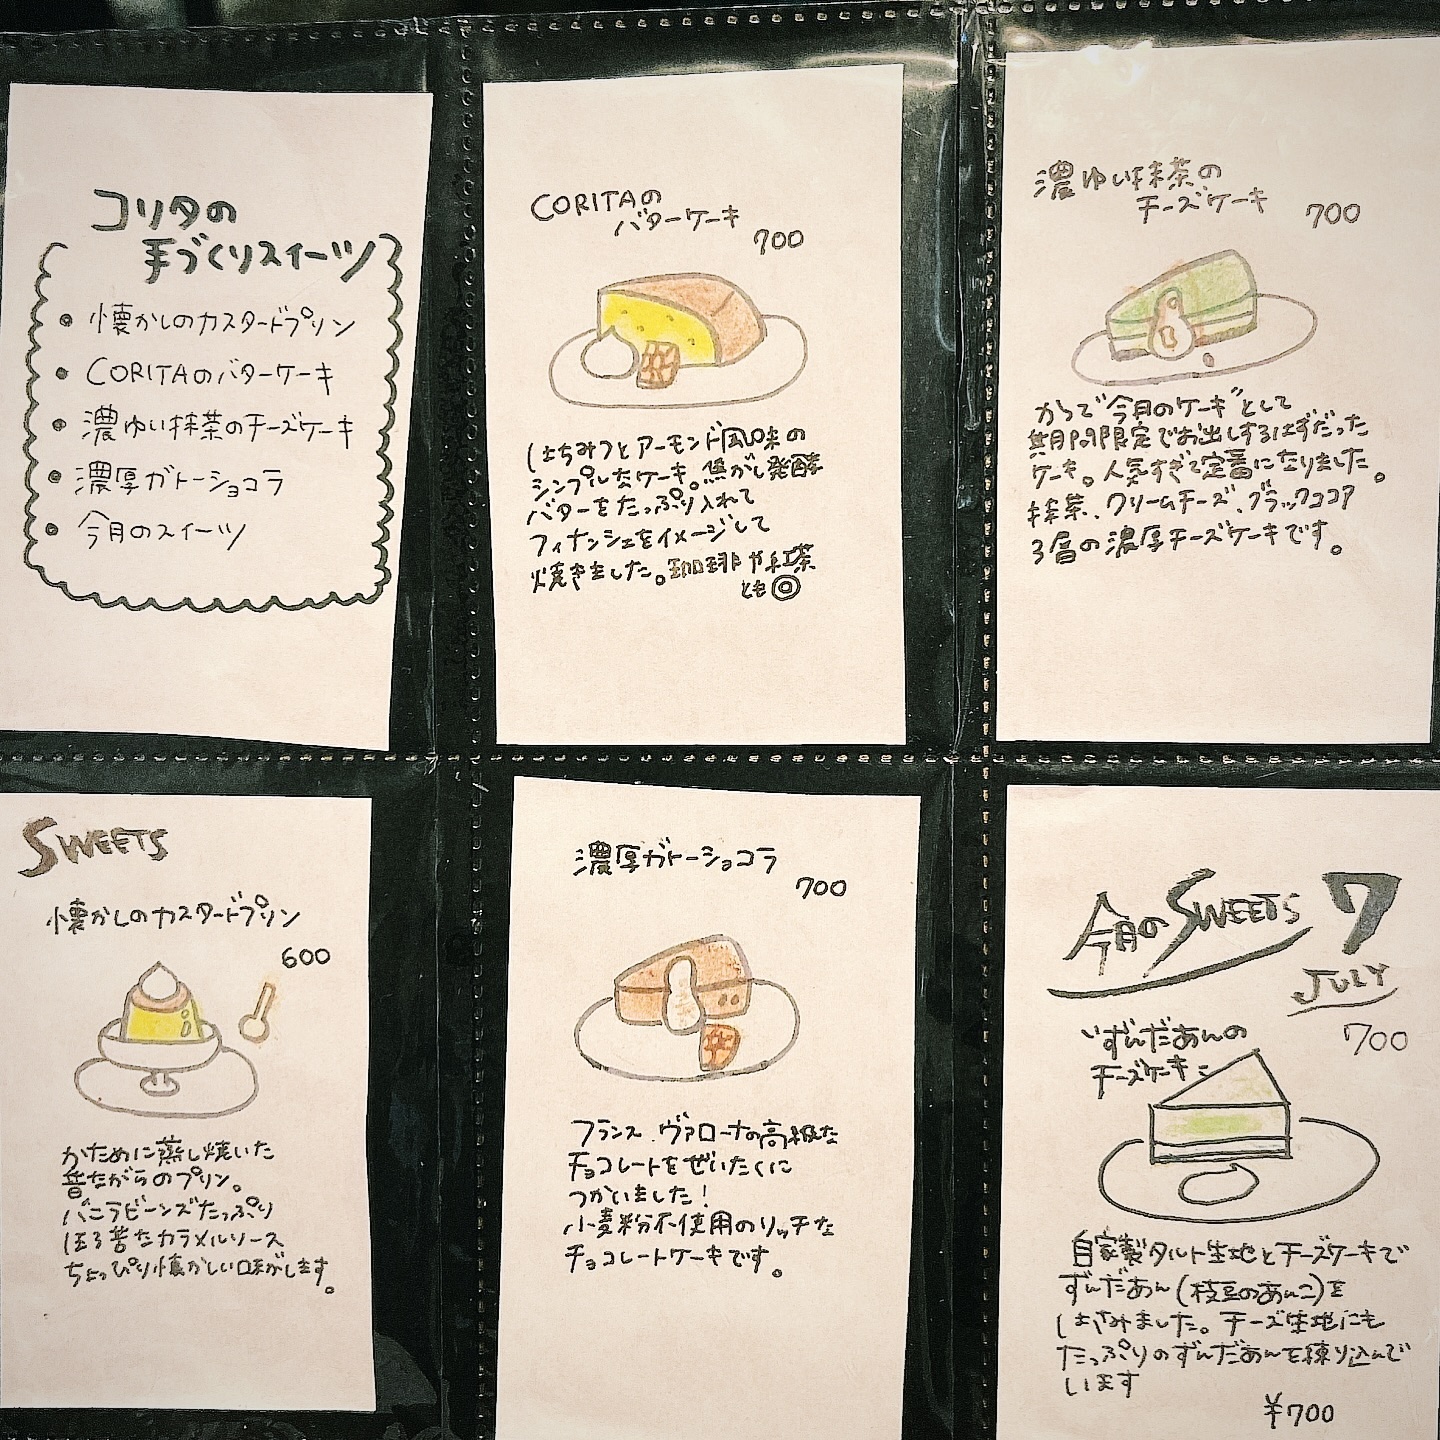 コリタの
手づくりスイーツ
• 懐かしのカスタードプリン
• CORITAのバターケーキ
• 濃ゆい抹茶のチーズケーキ
• 濃厚ガトーショコラ
• 今月のスイーツ
CORITAの
バターケーキ
700
はちみつとアーモンド風味の
シンプルなケーキ。焦がし発酵
バターをたっぷり入れて
フィナンシェをイメージして
焼きました。珈琲や紅茶
とも◎
濃ゆい抹茶の
チーズケーキ
700
かつて"今月のケーキ"として
期間限定でお出しするはずだった
ケーキ。人気すぎて定番になりました。
抹茶、クリームチーズ、ブラックココア
3層の濃厚チーズケーキです。
SWEETS
懐かしのカスタードプリン
600
かために蒸し焼いた
昔ながらのプリン。
バニラビーンズたっぷり
ほろ苦なカラメルソース
ちょっぴり懐かしい味がします。
濃厚ガトーショコラ
700
フランス、ヴァローナの高級な
チョコレートをぜいたくに
つかいました!
小麦粉不使用のリッチな
チョコレートケーキです。
今月のSWEETS 7
JULY
700
ずんだあんの
チーズケーキ
自家製タルト生地とチーズケーキで
ずんだあん(枝豆のあんこ)を
はさみました。チーズ生地にも
たっぷりのずんだあんを練り込んで
います
¥700